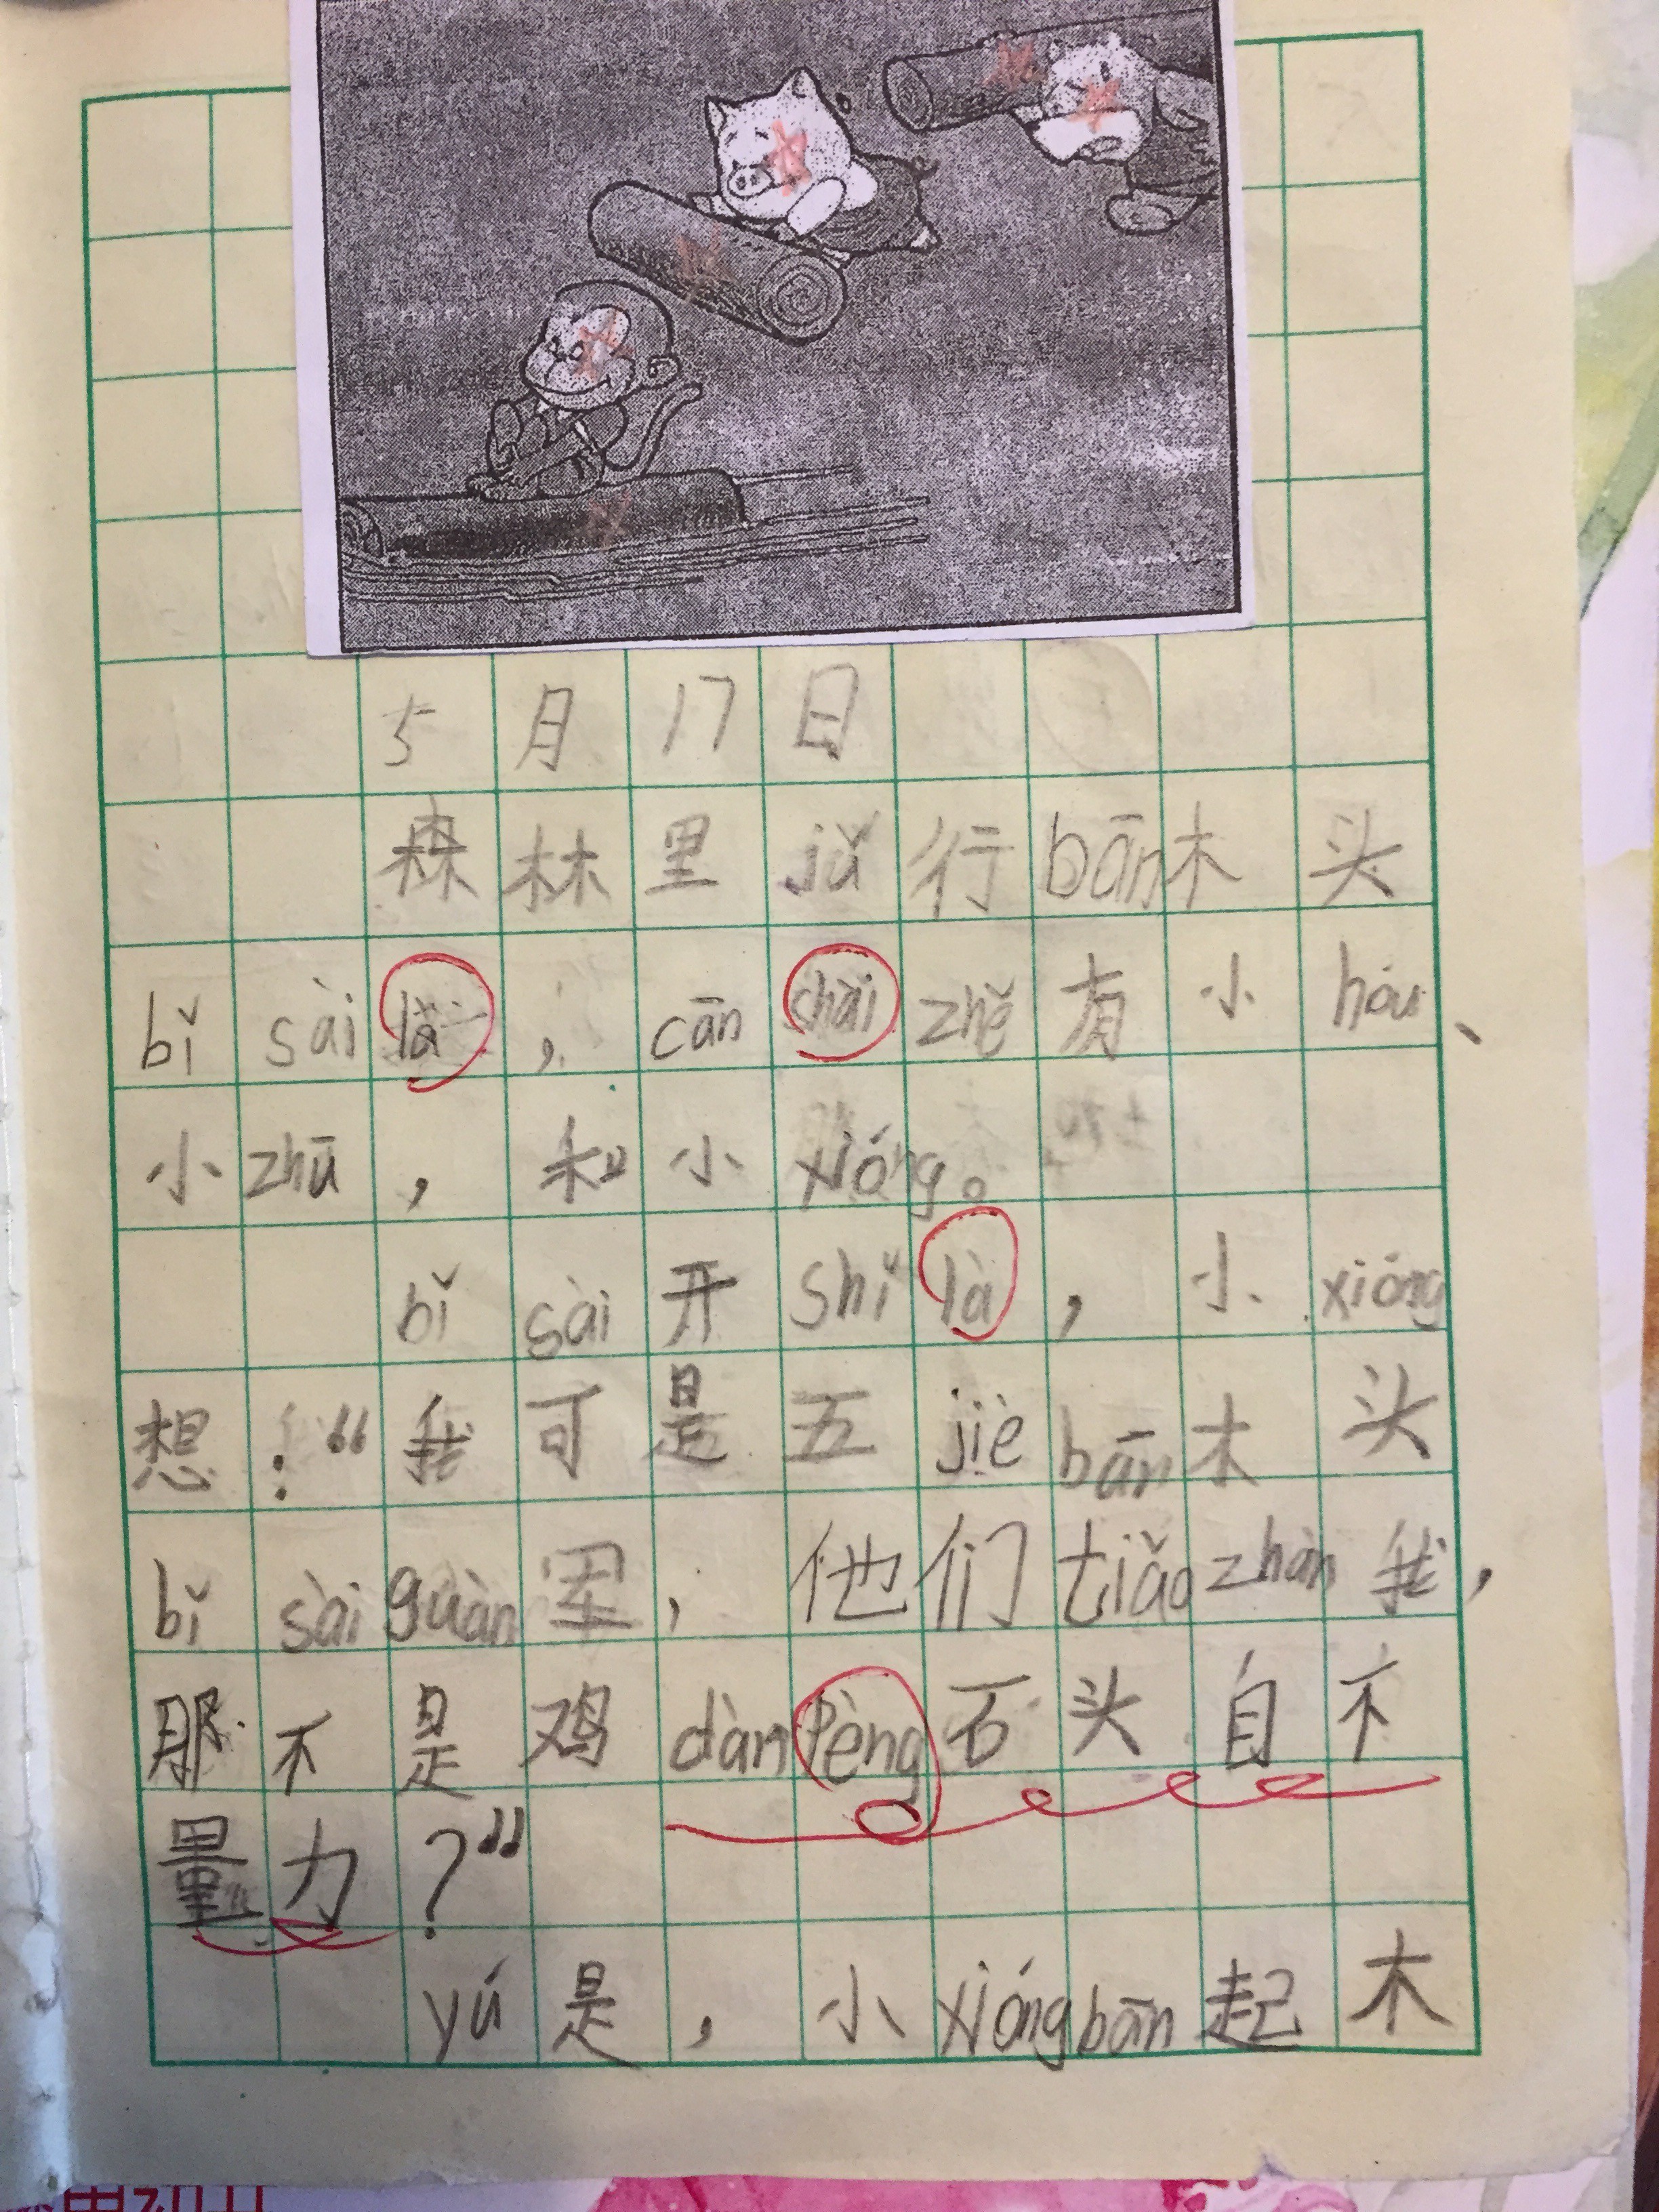 5月17日
森林里jǔ行bān木头
bǐ sài là，cān shài zhě有小hóu、
小zhū，和小xióng。
bǐ sài开shǐ là，小xióng
想：“我可是五jiè bān木头
bǐ sài guàn军，他们tiǎo zhàn我，
那不是鸡dàn pèng石头自不
量力？”
yú是，小xióng bān起木